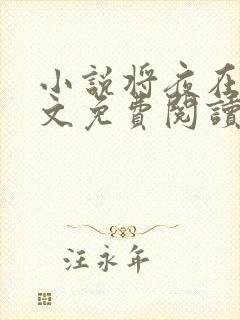 小説将夜在
文免費閱讀
汪永年